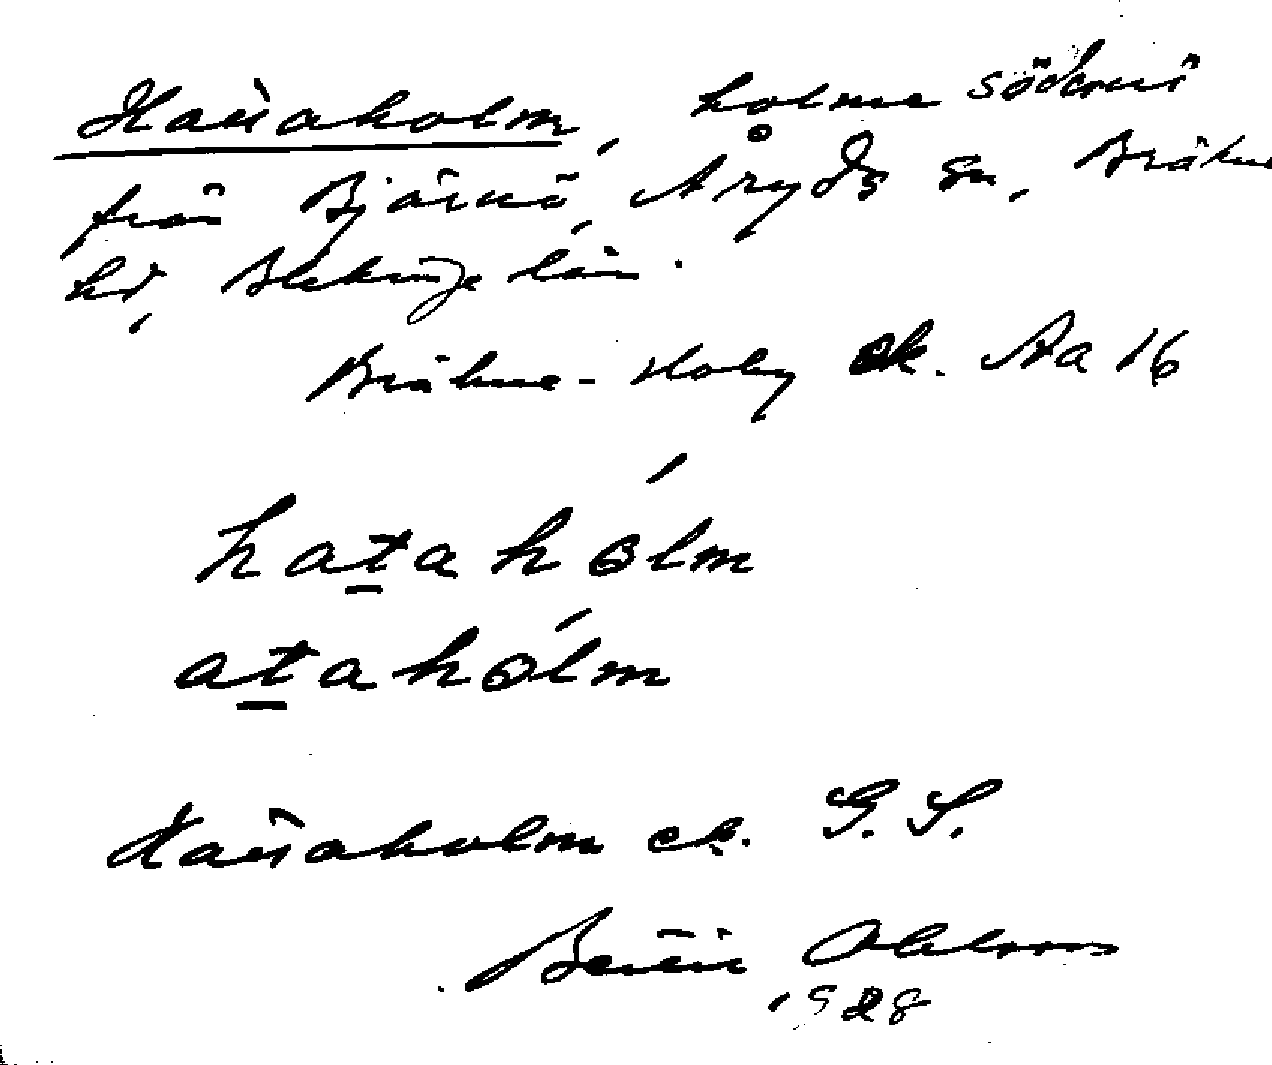 Hattaholm, holme söderut
från Björnö, Åryds sn, Bräkne
hd, Blekinge län.
Bräkne-Hoby ek. Aa 16
hataholm
ataholm
Hattaholm ek. G. S.
Bertil Ohlsson
1928